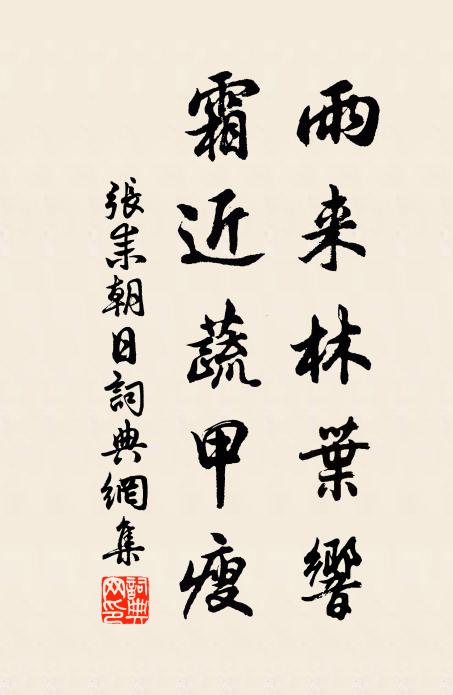 雨来林葉響
霜近蔬甲瘦
張耒朝日詞典網集
詞典網印